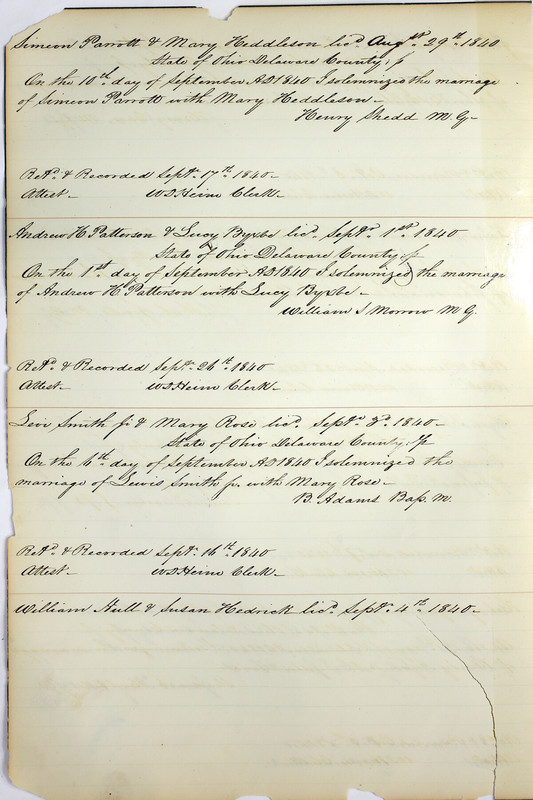 Simeon Parrott & Mary Heddleson licd. Augst. 29th. 1840
State of Ohio Delaware County, ss
On the 10th. day of September AD 1840 I solemnized the marriage
of Simeon Parrott with Mary Heddleson–
Henry Shedd M. G–
Retd. & Recorded Septr. 17th. 1840–
Attest– W D Heim Clerk–
Andrew H Patterson & Lucy Byxbe licd. Septr. 1st. 1840
State of Ohio Delaware County ss
On the 1st. day of September AD 1840 I solemnized the marriage
of Andrew H Patterson with Lucy Byxbe–
William S Morrow M G.
Retd. & Recorded Septr. 26th. 1840
Attest– W D Heim Clerk–
Levi Smith jr & Mary Rose licd. Septr. 3d. 1840–
State of Ohio Delaware County, ss
On the 6th. day of September AD 1840 I solemnized the
marriage of Lewis Smith jr. with Mary Rose–
B. Adams Bap. M.
Retd. & Recorded Septr. 16th. 1840
Attest– W D Heim Clerk–
William Hull & Susan Hedrick licd. Septr. 4th. 1840–